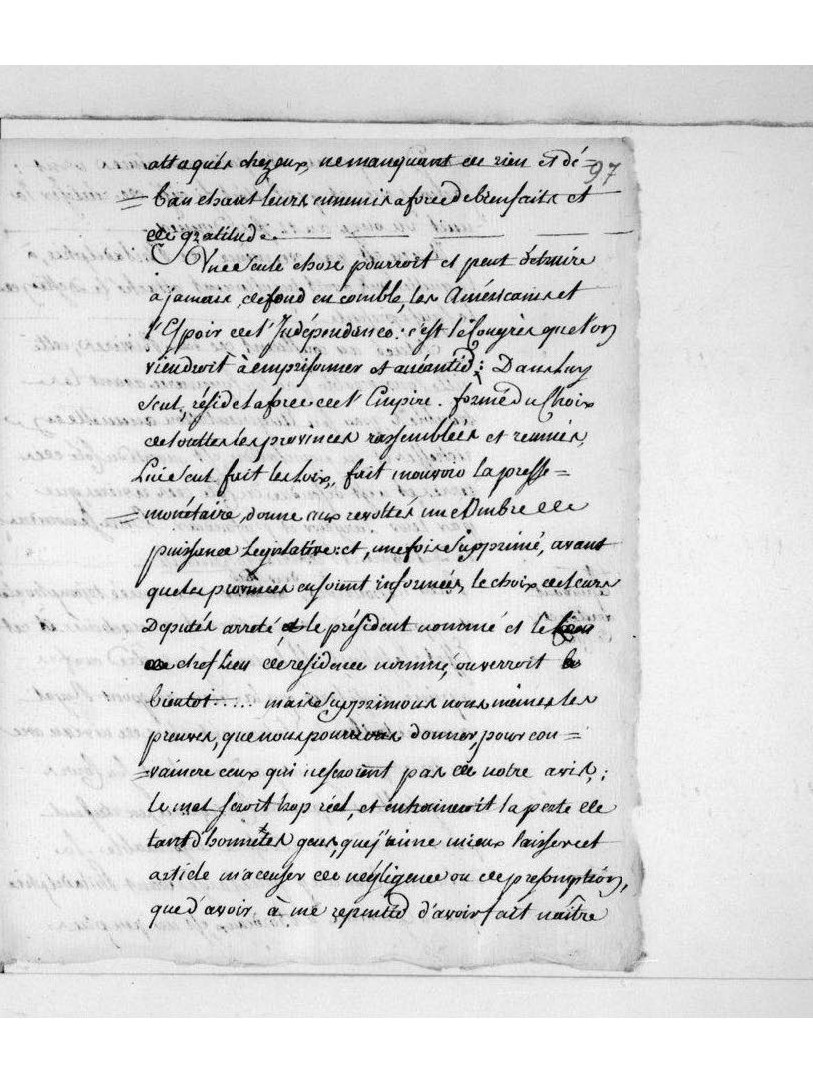 attaqués chez eux, ne manquant de rien et dé= 97
=bauchant leurs ennemis a force de bienfaits et
de gratitude.
Une seule chose pourroit et peut détruire
à jamais, de fond en comble, les Américains et
l'Espoir de l'Indépendance: c'est le Congrès que l'on
viendroit à emprisonner et anéantir; Dans luy
seul, réside la force de l'Empire. formé du Choix
de touttes les provinces rassemblées et reunies,
Lui seul fait les loix, fait mouvoir la presse=
=monétaire, donne aux revoltés une ombre de
puissance Legislative: et, une fois supprimé, avant
que les provinces en soient informées, le choix de leurs
Deputés arreté, le président nommé et le
chef lieu de residence nommé, on verroit
bientot..... mais supprimons nous mêmes les
preuves, que nous pourrions donner, pour con=
=vaincre ceux qui ne seroient pas de notre avis;
le mal seroit trop réel, et entraineroit la perte de
tant d'honnêtes gens, que j'aime mieux laisser cet
article m'accuser de négligence ou de présomption,
que d'avoir, à me repentir d'avoir fait naître